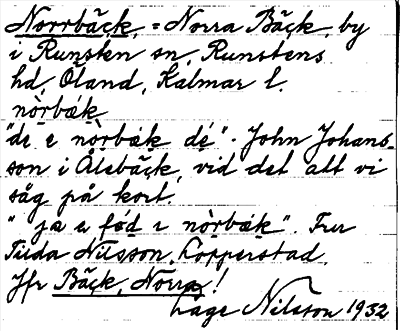 Norrbäck, = Norra Bäck, by
i Runsten sn, Runstens
hd, Öland, Kalmar l.
nòrbæk
"de e nòrbæk dé". John Johans-
son i Ålebäck, vid det att vi
såg på kort.
"ja e fód i nòrbæk". Fru
Tilda Nilsson, Lopperstad.
Jfr Bäck, Norra!
Låge Nilsson 1932